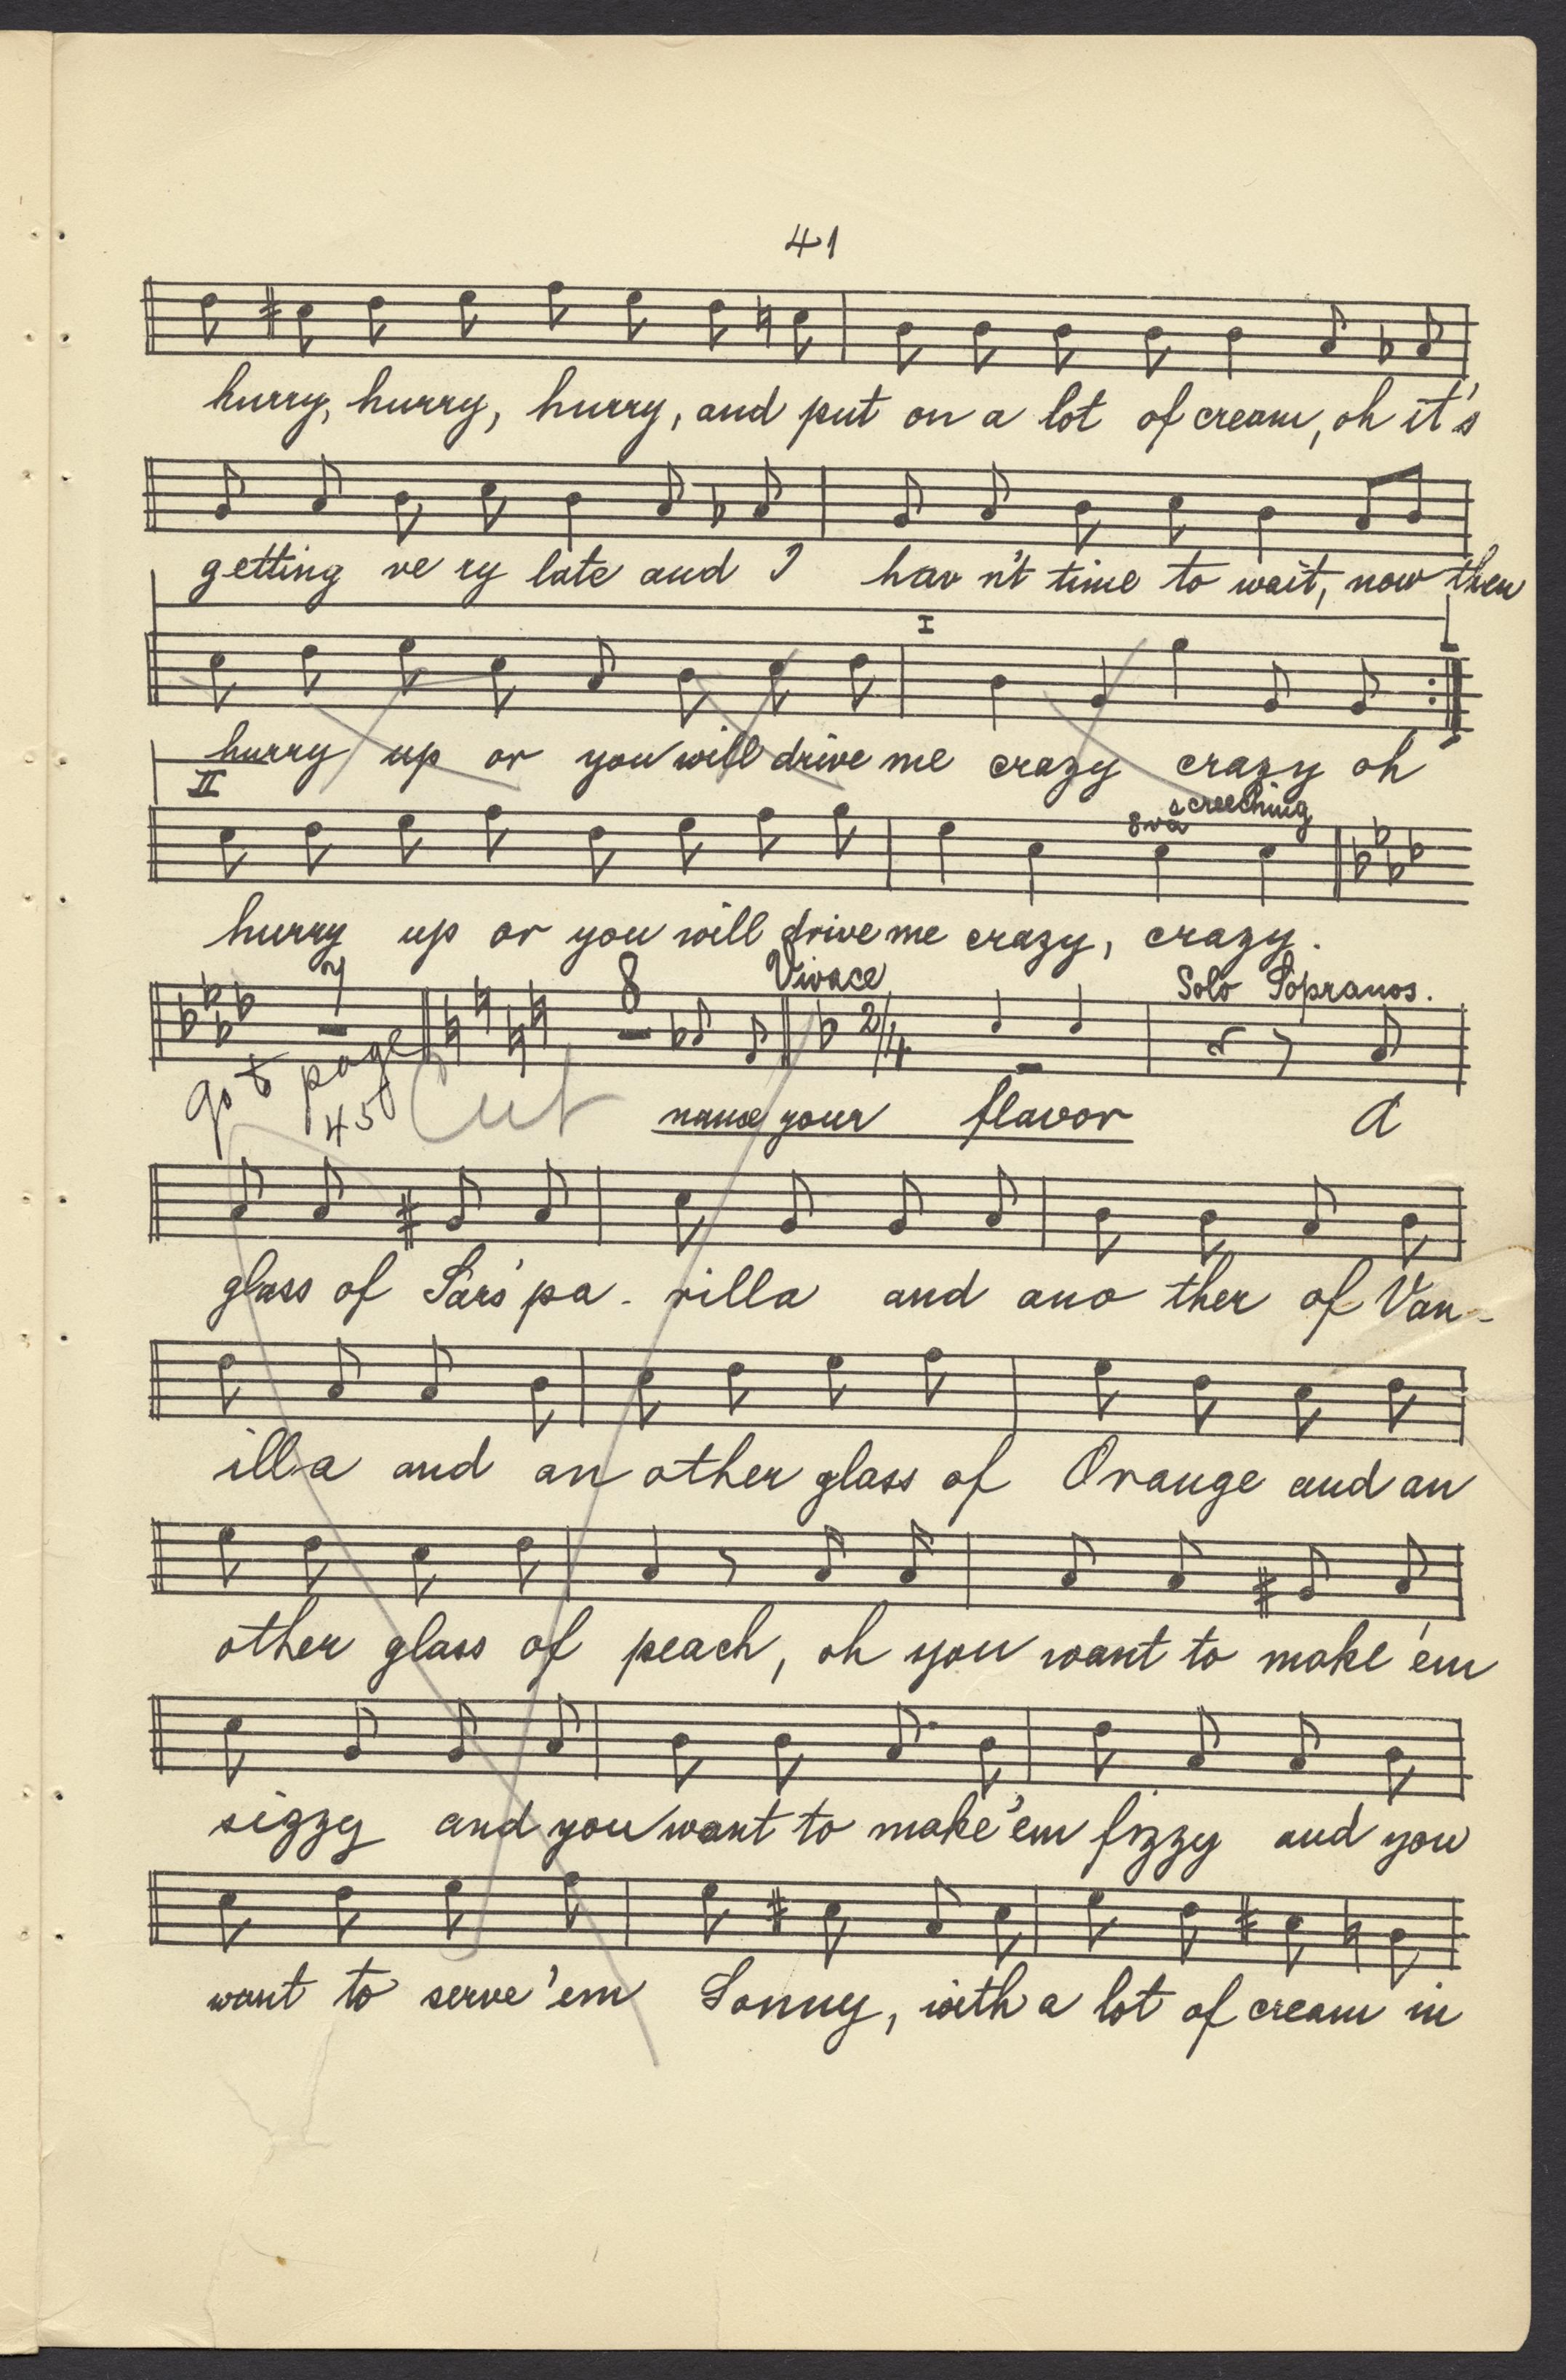 41
hurry, hurry, hurry, and put on a lot of cream, oh it's
getting ve ry late and I hav n't time to wait, now then
I
hurry up or you will drive me crazy crazy oh
II
8va screeching
hurry up or you will drive me crazy, crazy.
7 8 Vivace Solo Sopranos.
2/4
go to page 45 Cut name your flavor A
glass of Sars'pa - rilla and ano ther of Van -
illa and an other glass of Orange and an
other glass of peach, oh you want to make 'em
sizzy and you want to make 'em fizzy and you
want to serve 'em Sonny, with a lot of cream in